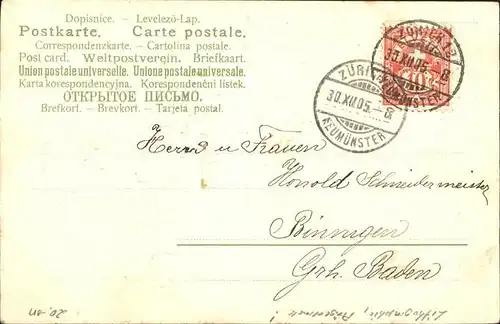 Dopisnice. – Levelezö-Lap.
Postkarte. Carte postale.
Correspondenzkarte. – Cartolina postale.
Post card. Weltpostverein. Briefkaart.
Union postale universelle. Unione postale universale.
Karta korespondencyjna. Korespondenční lístek.
ОТКРЫТОЕ ПИСЬМО.
Brefkort. – Brevkort. – Tarjeta postal.
ZÜRICH 12
30.XII.05. – 8
NEUMÜNSTER
ZÜRICH
30.XII.05. – 8
NEUMÜNSTER
Herr u Frauen
Honold Schneidermeister
Binningen
Grh. Baden
20.-
Lithographie,